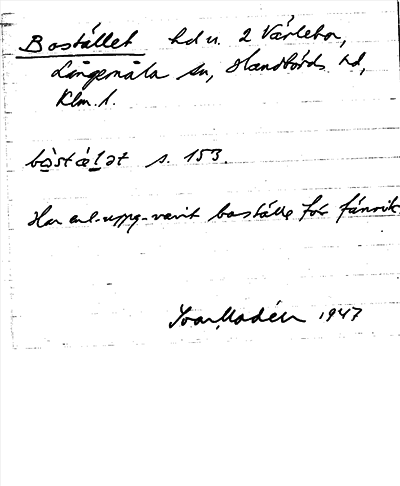 Bostället hd u. 2 Värlebo,
Långemåla sn, Handbörds hd,
Klm. l.
bòstálət s. 153.
Har enl. uppg. varit boställe för fänrik
Ivar Modéer 1947